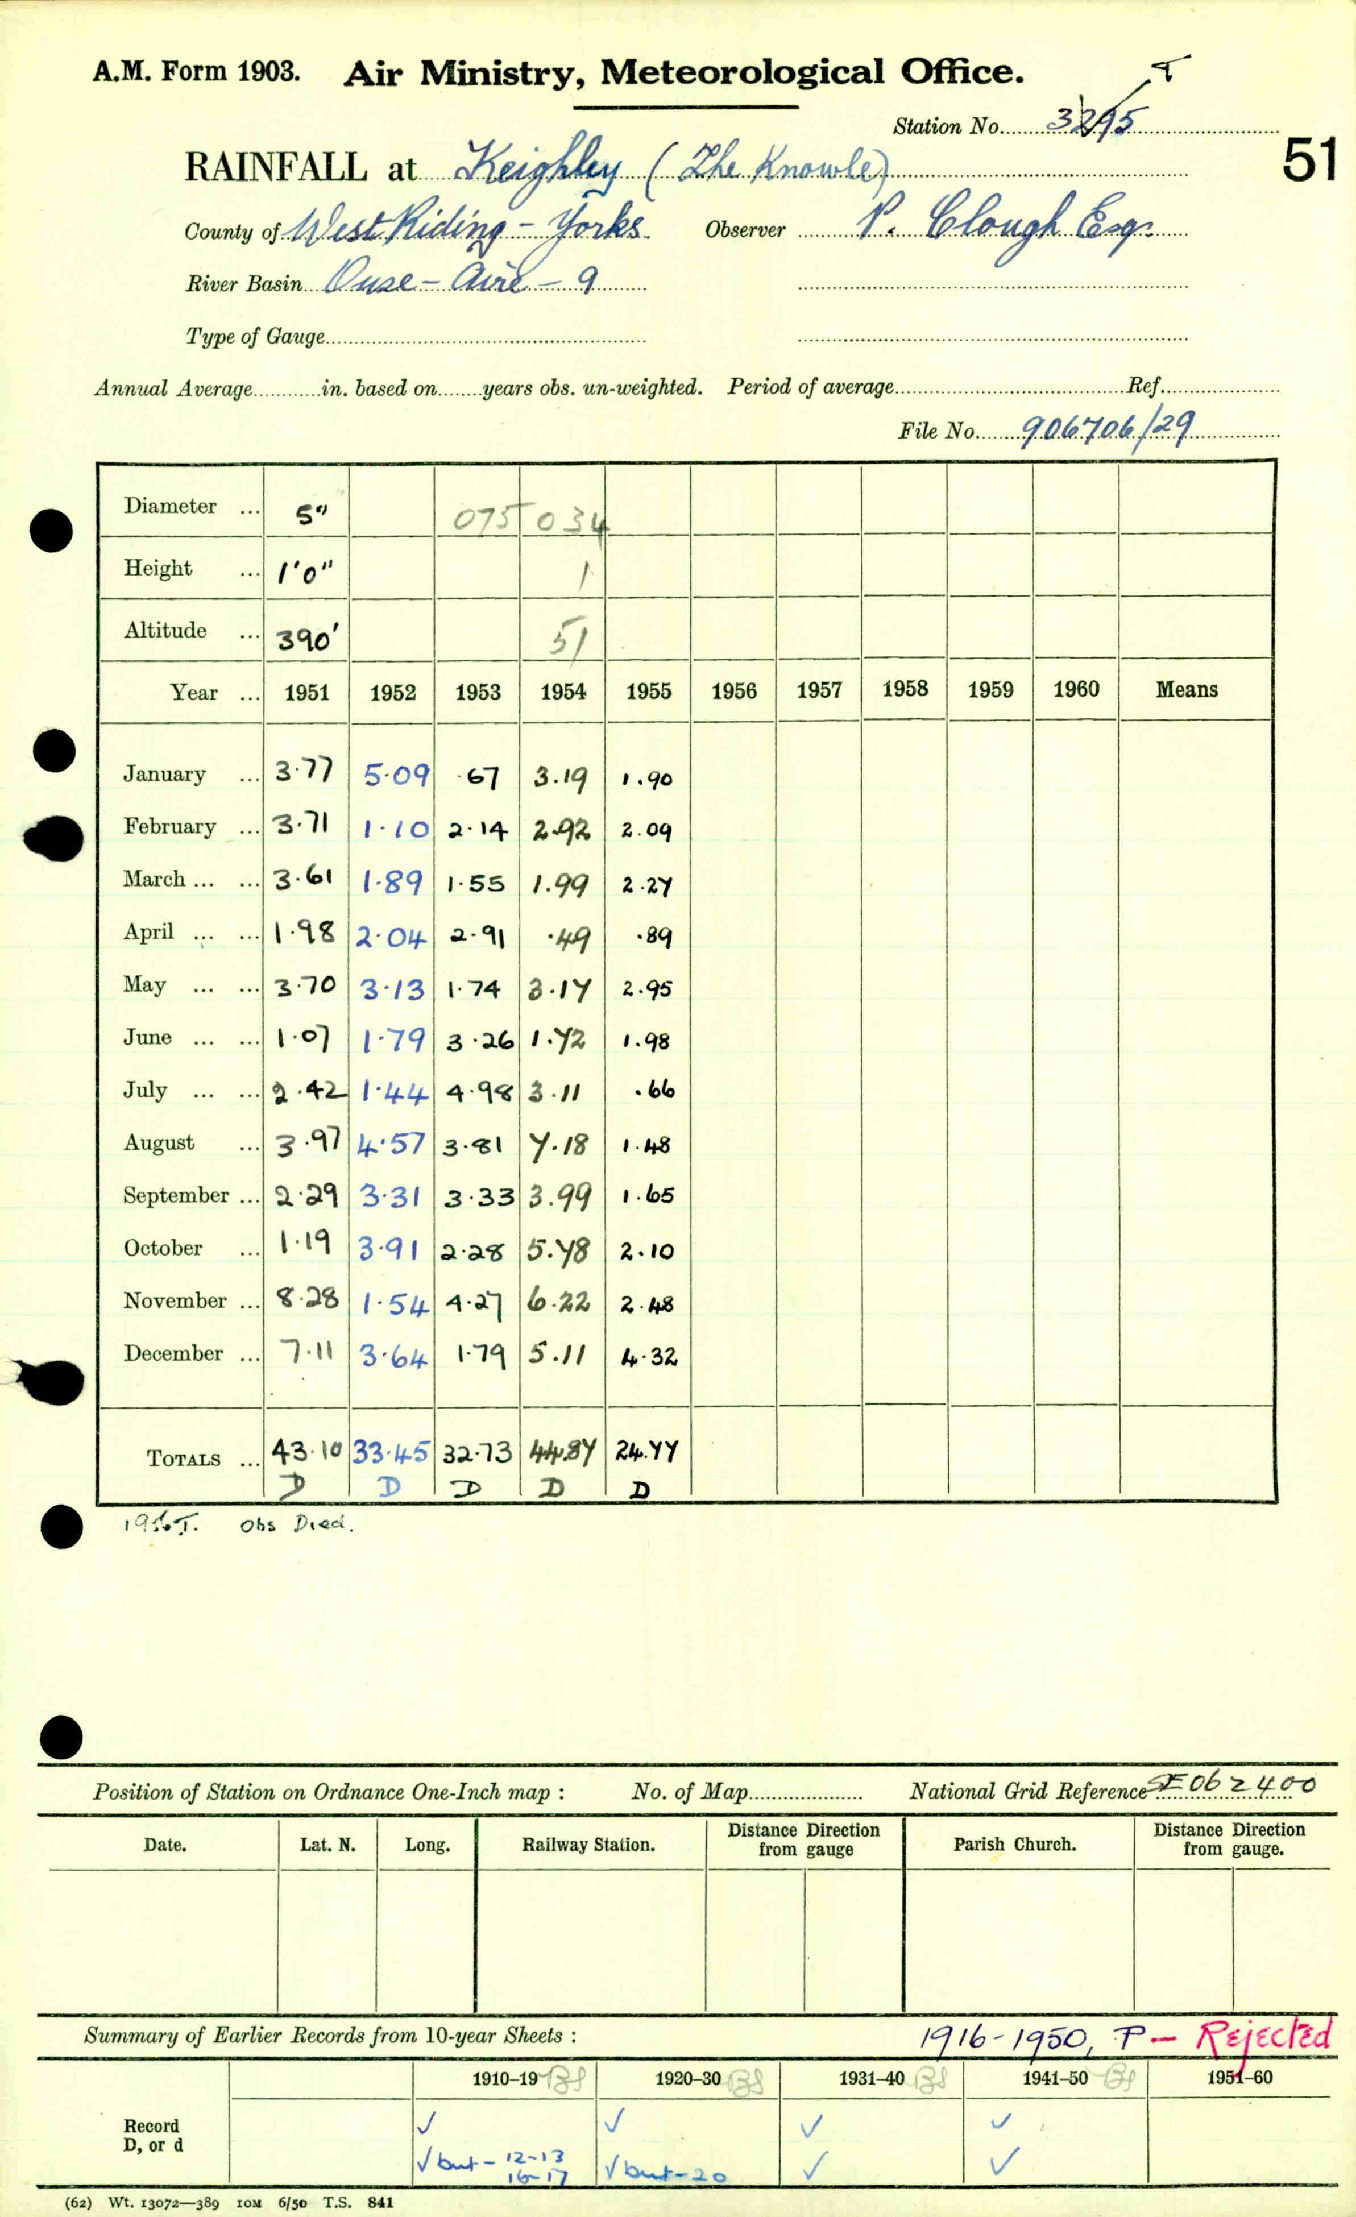 A.M. Form 1903. Air Ministry, Meteorological Office.
T
Station No. 3295
51
RAINFALL at Keighley (The Knowle)
County of West Riding - Yorks Observer P. Clough Esq.
River Basin Ouse - Aire - 9
Type of Gauge
Annual Average in. based on years obs. un-weighted. Period of average Ref.
File No. 906706/29
Diameter ... 5" 075 034
Height ... 1'0" 1
Altitude ... 390' 51
Year ... 1951 1952 1953 1954 1955 1956 1957 1958 1959 1960 Means
January ... 3.77 5.09 .67 3.19 1.90
February ... 3.71 1.10 2.14 2.92 2.09
March ... ... 3.61 1.89 1.55 1.99 2.27
April ... ... 1.98 2.04 2.91 .49 .89
May ... ... 3.70 3.13 1.74 3.17 2.95
June ... ... 1.07 1.79 3.26 1.72 1.98
July ... ... 2.42 1.44 4.98 3.11 .66
August ... 3.97 4.57 3.81 7.18 1.48
September ... 2.29 3.31 3.33 3.99 1.65
October ... 1.19 3.91 2.28 5.78 2.10
November ... 8.28 1.54 4.27 6.22 2.48
December ... 7.11 3.64 1.79 5.11 4.32
TOTALS ... 43.10 33.45 32.73 44.87 24.77
D D D D D
1956T. Obs Died.
Position of Station on Ordnance One-Inch map : No. of Map National Grid Reference SE 062400
Date. Lat. N. Long. Railway Station. Distance from Direction gauge Parish Church. Distance from Direction gauge.
Summary of Earlier Records from 10-year Sheets : 1916-1950, P - Rejected
1910-19 1920-30 1931-40 1941-50 1951-60
Record ✓ ✓ ✓ ✓
D, or d ✓ but - 12-13 16-17 ✓ but - 20 ✓ ✓
(62) Wt. 13072—389 10M 6/50 T.S. 841